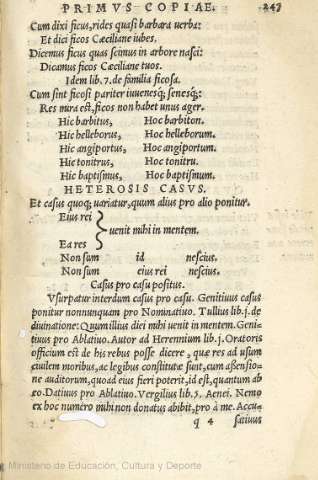 PRIMVS COPIAE. 247
Cum dixi ficus, rides quasi barbara uerba:
Et dici ficos Cæciliane iubes.
Dicemus ficus quas scimus in arbore nasci:
Dicamus ficos Cæciliane tuos.
Idem lib. 7. de familia ficosa.
Cum sint ficosi pariter iuuenesq;, senesq;:
Res mira est, ficos non habet unus ager.
Hic barbitus, Hoc barbiton.
Hic helleborus, Hoc helleborum.
Hic angiportus, Hoc angiportum.
Hic tonitrus, Hoc tonitru.
Hic baptismus, Hoc baptismum.
HETEROSIS CASVS.
Et casus quoq; uariatur, quum alius pro alio ponitur.
Eius rei
uenit mihi in mentem.
Ea res
Non sum id nescius.
Non sum eius rei nescius.
Casus pro casu positus.
Vsurpatur interdum casus pro casu. Genitiuus casus
ponitur nonnunquam pro Nominatiuo. Tullius lib. j. de
diuinatione: Quum illius diei mihi uenit in mentem. Geni-
tiuus pro Ablatiuo. Autor ad Herennium lib. j. Oratoris
officium est de his rebus posse dicere, quæ res ad usum
ciuilem moribus, ac legibus constitutæ sunt, cum assensio-
ne auditorum, quoad eius fieri poterit, id est, quantum ab
eo. Datiuus pro Ablatiuo. Vergilius lib. 5. Aenei. Nemo
ex hoc numero mihi non donatus abibit, pro à me. Accu-
q 4 satiuus
Ministerio de Educación, Cultura y Deporte